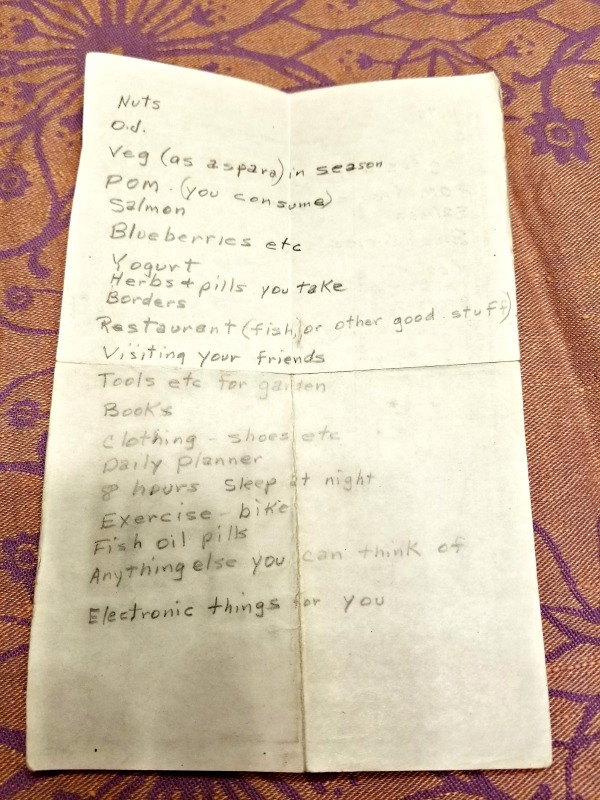 Nuts
O.J.
Veg (as asparg) in season
POM. (you consume)
Salmon
Blueberries etc
Yogurt
Herbs + pills you take
Borders
Restaurent (fish, or other good stuff)
Visiting your friends
Tools etc for garden
Books
Clothing - shoes etc
Daily Planner
8 hours sleep at night
Exercise - bike
Fish oil pills
Anything else you can think of
Electronic things for you